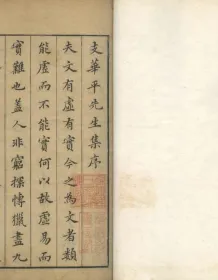 支華平先生集序
夫文有虛有實今之為文者類
能虛而不能實何以故虛易而
實難也蓋人非窮探博獵盡九